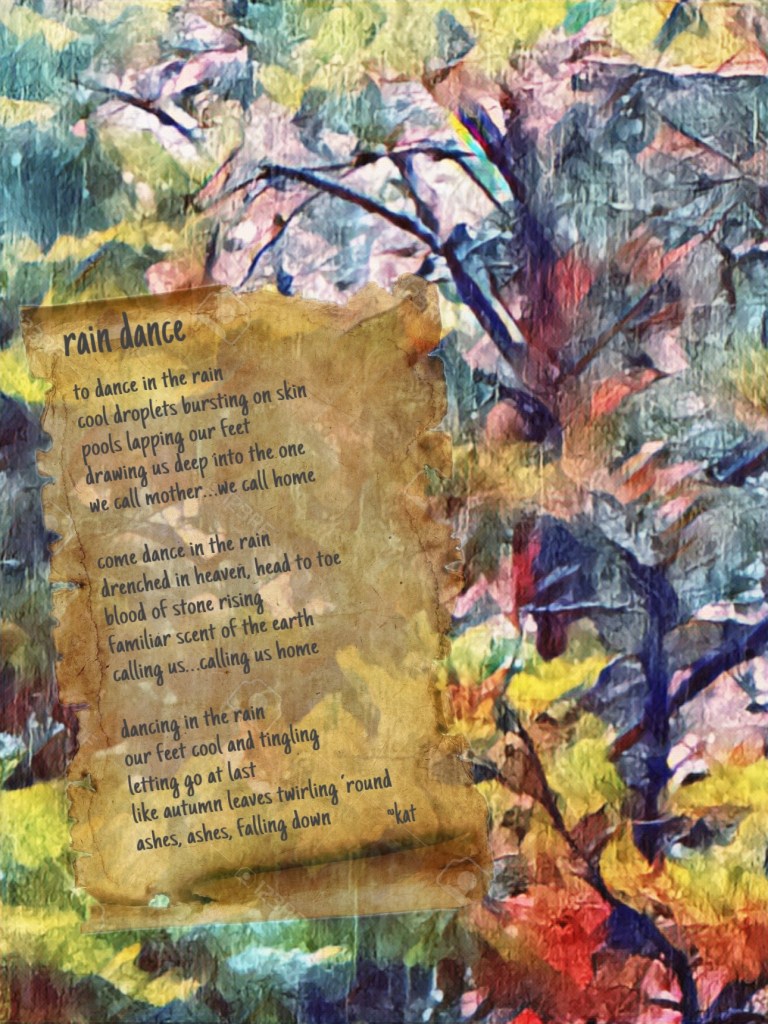 rain dance
to dance in the rain
cool droplets bursting on skin
pools lapping our feet
drawing us deep into the one
we call mother...we call home
come dance in the rain
drenched in heaven, head to toe
blood of stone rising
familiar scent of the earth
calling us...calling us home
dancing in the rain
our feet cool and tingling
letting go at last
like autumn leaves twirling ´round
ashes, ashes, falling down ~kat